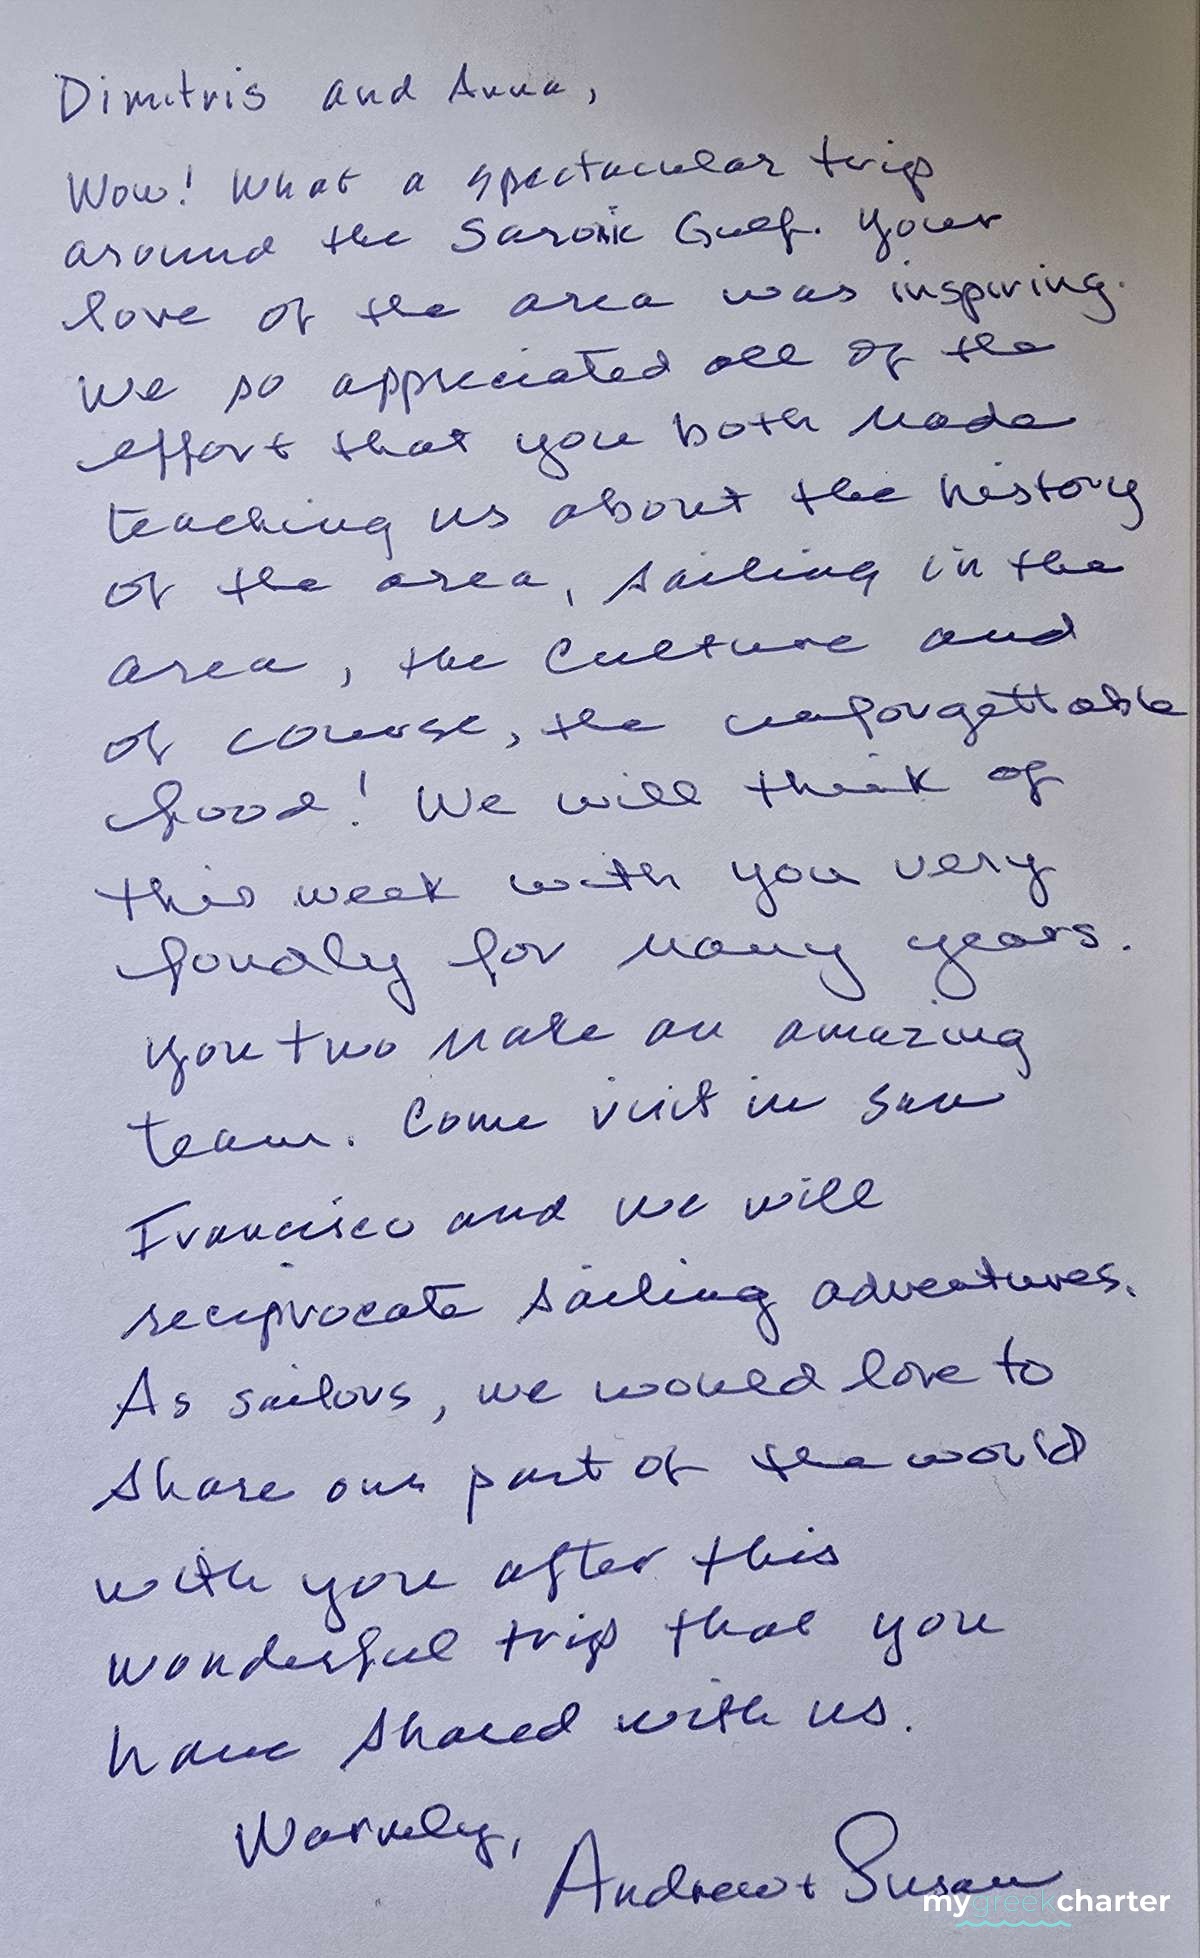 Dimitris and Anna,
Wow! What a spectacular trip
around the Saronic Gulf. Your
love of the area was inspiring.
We so appreciated all of the
effort that you both made
teaching us about the history
of the area, sailing in the
area, the culture and
of course, the unforgettable
food! We will think of
this week with you very
fondly for many years.
You two make an amazing
team. Come visit in San
Francisco and we will
reciprocate sailing adventures.
As sailors, we would love to
share our part of the world
with you after this
wonderful trip that you
have shared with us.
Warmly,
Andrew + Susan
mygreekcharter